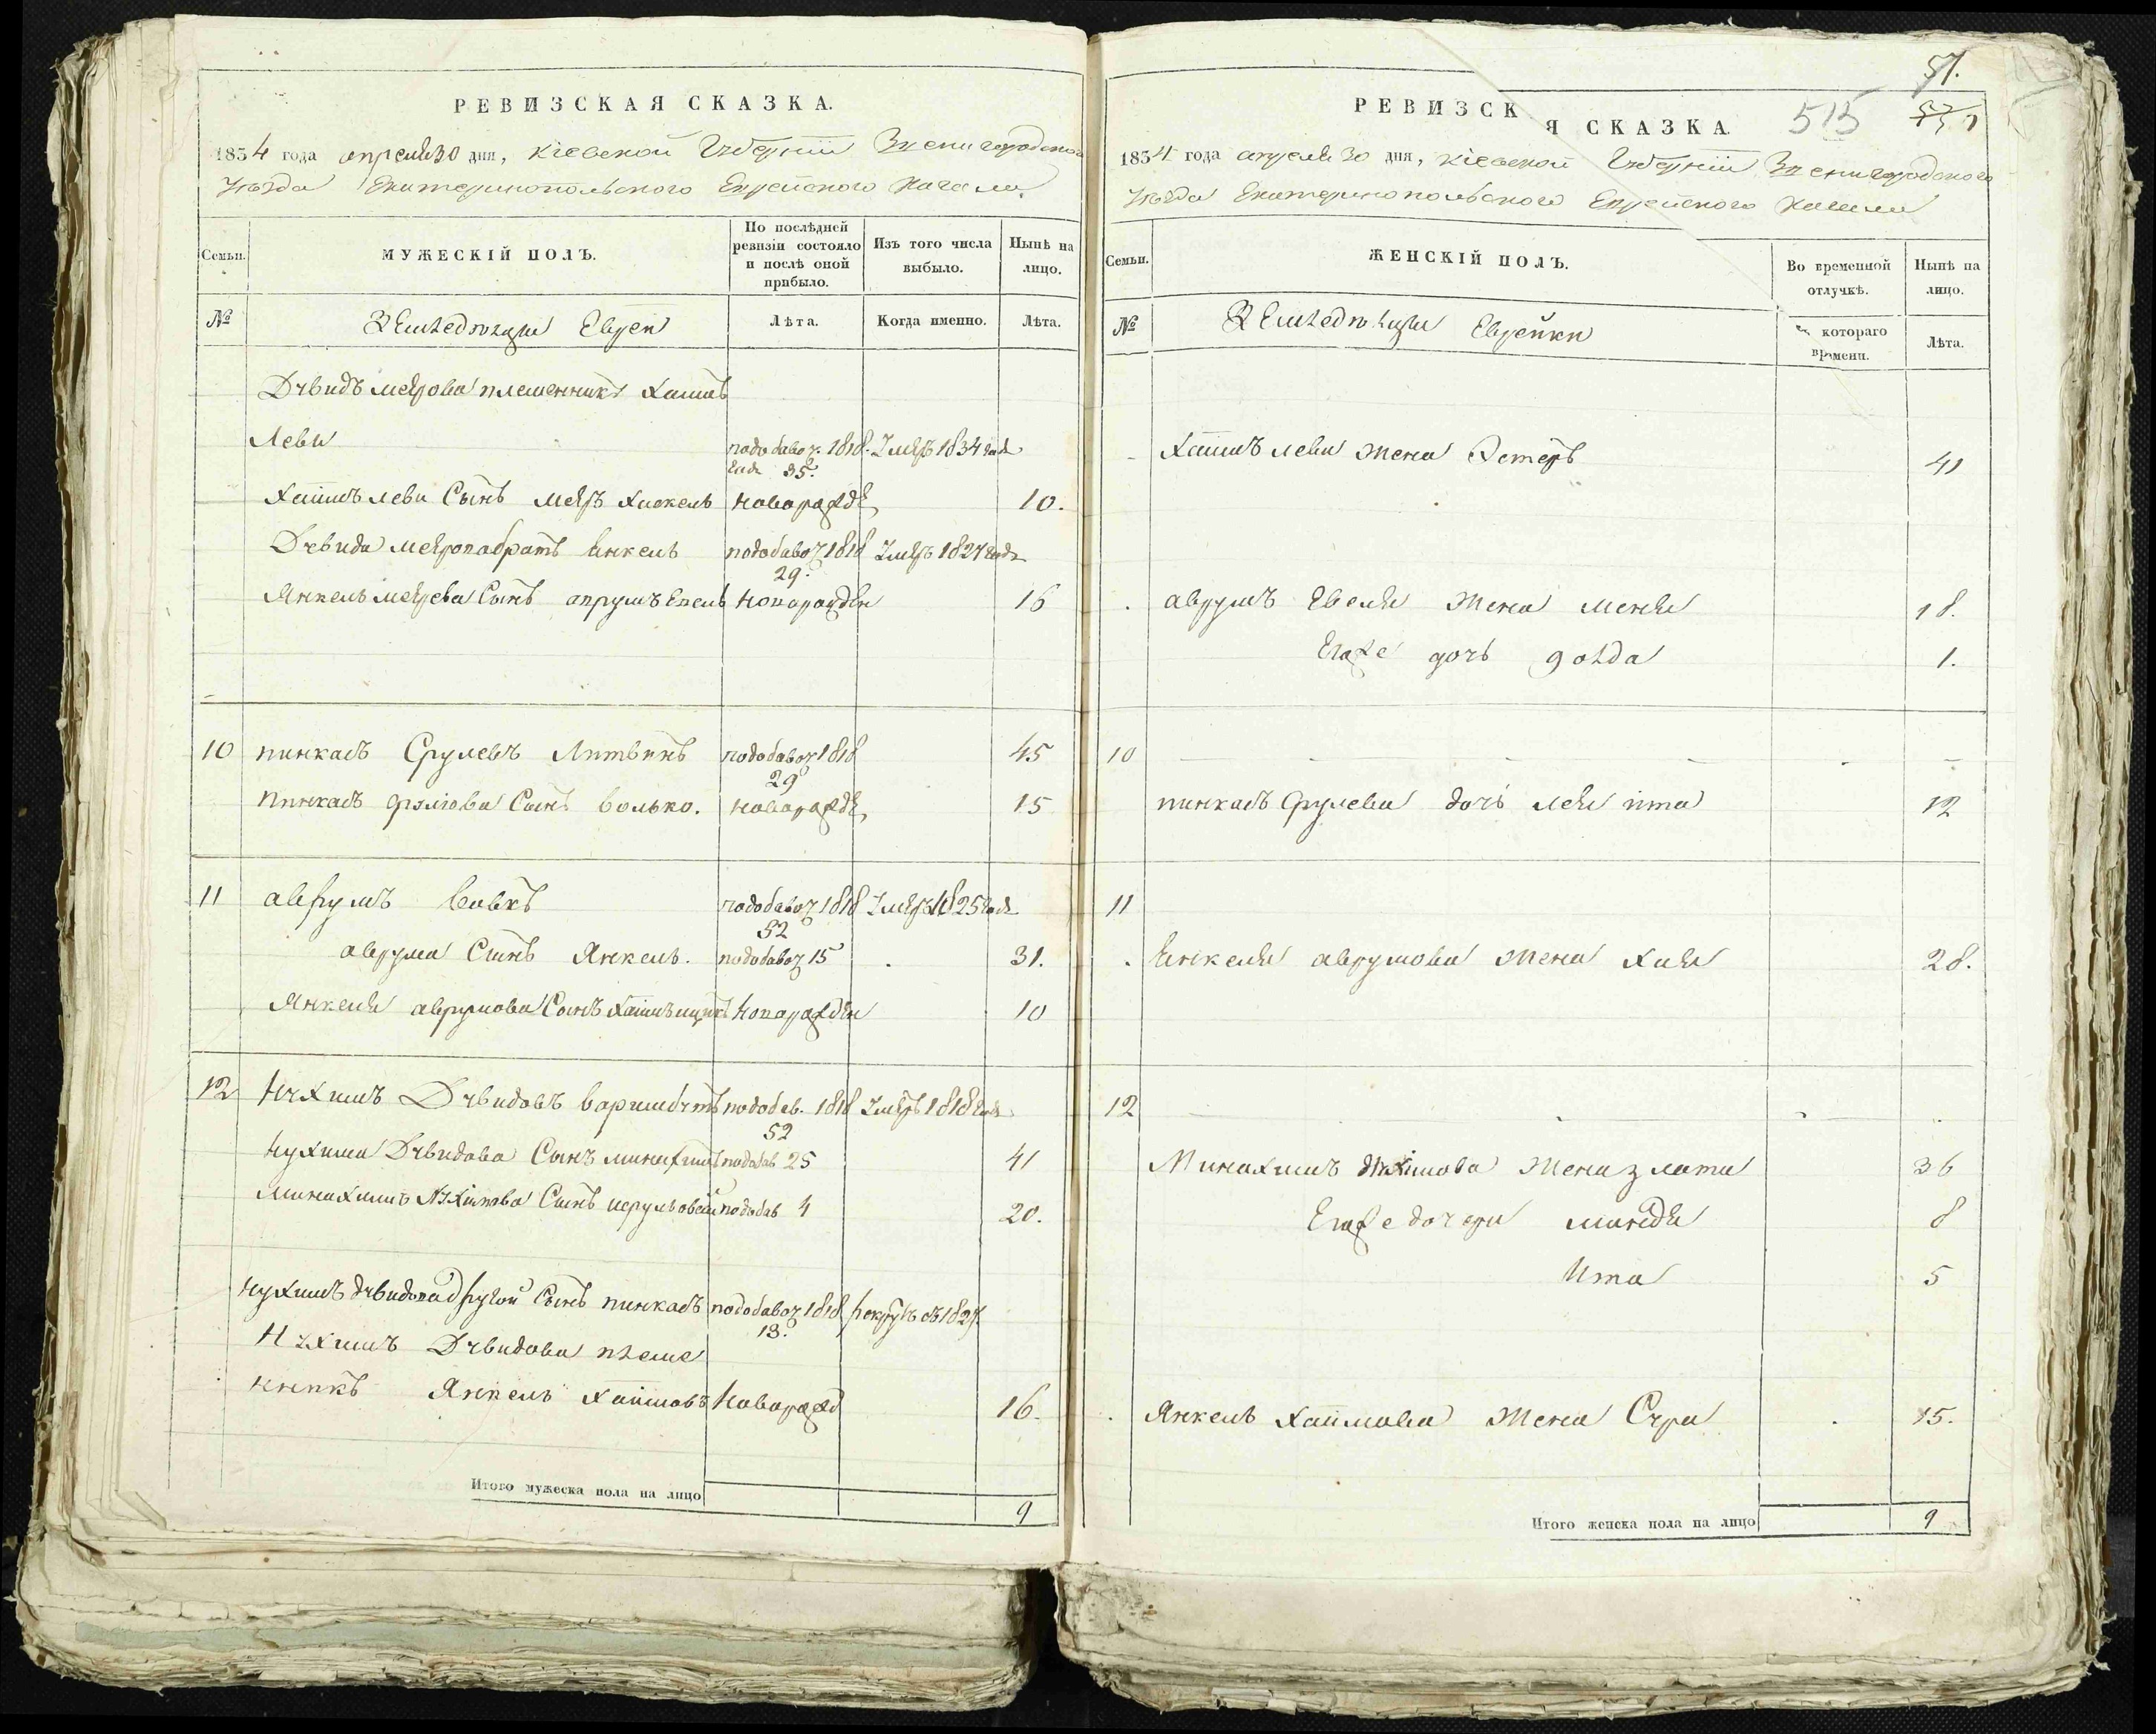 РЕВИЗСКАЯ СКАЗКА.
1834 года апреля 30 дня, Кіевской Губерніи Звенигородского
Уезда Екатеринопольского Еврейского Кагала
Семьи.
МУЖЕСКІЙ ПОЛЪ.
По послѣдней ревизіи состояло и послѣ оной прибыло.
Изъ того числа выбыло.
Нынѣ на лицо.
№
Евреи
Лѣта.
Когда именно.
Лѣта.
Дувидъ меерова племенникъ Хаимъ
Леви
подобавоч. 1818. Умеръ 1834 года
35.
Хаимъ леви Сынъ меяръ Хаскель новоражде 10.
Дувида мееровабратъ Янкель подобавоч 1818 Умеръ 1827 года
29.
Янкель меерова Сынъ аврумъ Евель новоражден 16
10 пинкасъ Срулевъ Литвинъ подобавоч 1818 45
29
пинкасъ Срулова Сынъ волько. новоражде 15
11 аврумъ вовкъ подобавоч 1818 Умеръ 1825 года
52
аврума Сынъ Янкель. подобавоч 15 31.
Янкеля аврумова Сынъ новоражден 10
12 Нухимъ Дувидовъ подобав. 1818 Умеръ 1818 года
52
нухима Дувидова Сынъ минахимъ подобав 25 41
минахимъ Нухимова Сынъ подобав 4 20.
нухимъ дувидова другой Сынъ пинкасъ подобавоч 1818 рекрутъ съ 1827
13.
Нухимъ Дувидова племе
нникъ Янкель Хаимовъ новоражд 16.
Итого мужеска пола на лицо 9
51.
515
РЕВИЗСК Я СКАЗКА.
1834 года апреля 30 дня, Кіевской Губерніи Звенигородского
Уезда Екатеринопольского Еврейского Кагала
Семьи.
ЖЕНСКІЙ ПОЛЪ.
Во временной отлучкѣ.
Нынѣ на лицо.
№
Еврейки
котораго времени.
Лѣта.
Хаимъ леви жена Эстеръ 41
аврумъ Евеля жена меня 18.
Егоже дочь голда 1.
10
пинкасъ Срулева дочь лея ита 12
11
Янкеля аврумова жена Хая 28.
12
Минахимъ Нухимова жена злата 36
Егоже дочери миндя 8
Ита 5
Янкель Хаимова жена Сура 15.
Итого женска пола на лицо 9